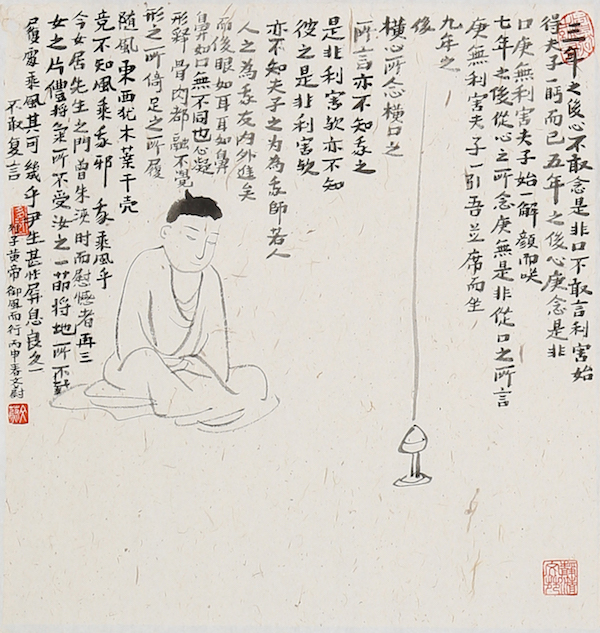 三年之後心不敢念是非口不敢言利害始
得夫子一眄而已五年之後心庚念是非
口庚無利害夫子始一解顏而咲
七年之後從心之所念庚無是非從口之所言
庚無利害夫子一引吾並席而坐
九年之
後
橫心所念橫口之
所言亦不知我之
是非利害欤亦不知
彼之是非利害欤
亦不知夫子之为為我師若人
人之為我友內外進矣
而後眼如耳耳如鼻
鼻如口無不同也心凝
形釋骨肉都融不覺
形之所倚足之所履
隨風東西犹木葉干壳
竟不知風乘我邪我乘風乎
今女居先生之門曾未浹時而慰憾者再三
女之片體將氣所不受汝之一節將地所不載
履虛乘風其可幾乎尹生甚怍屏息良久
不敢复言
子黄帝御風而行丙申春文尉